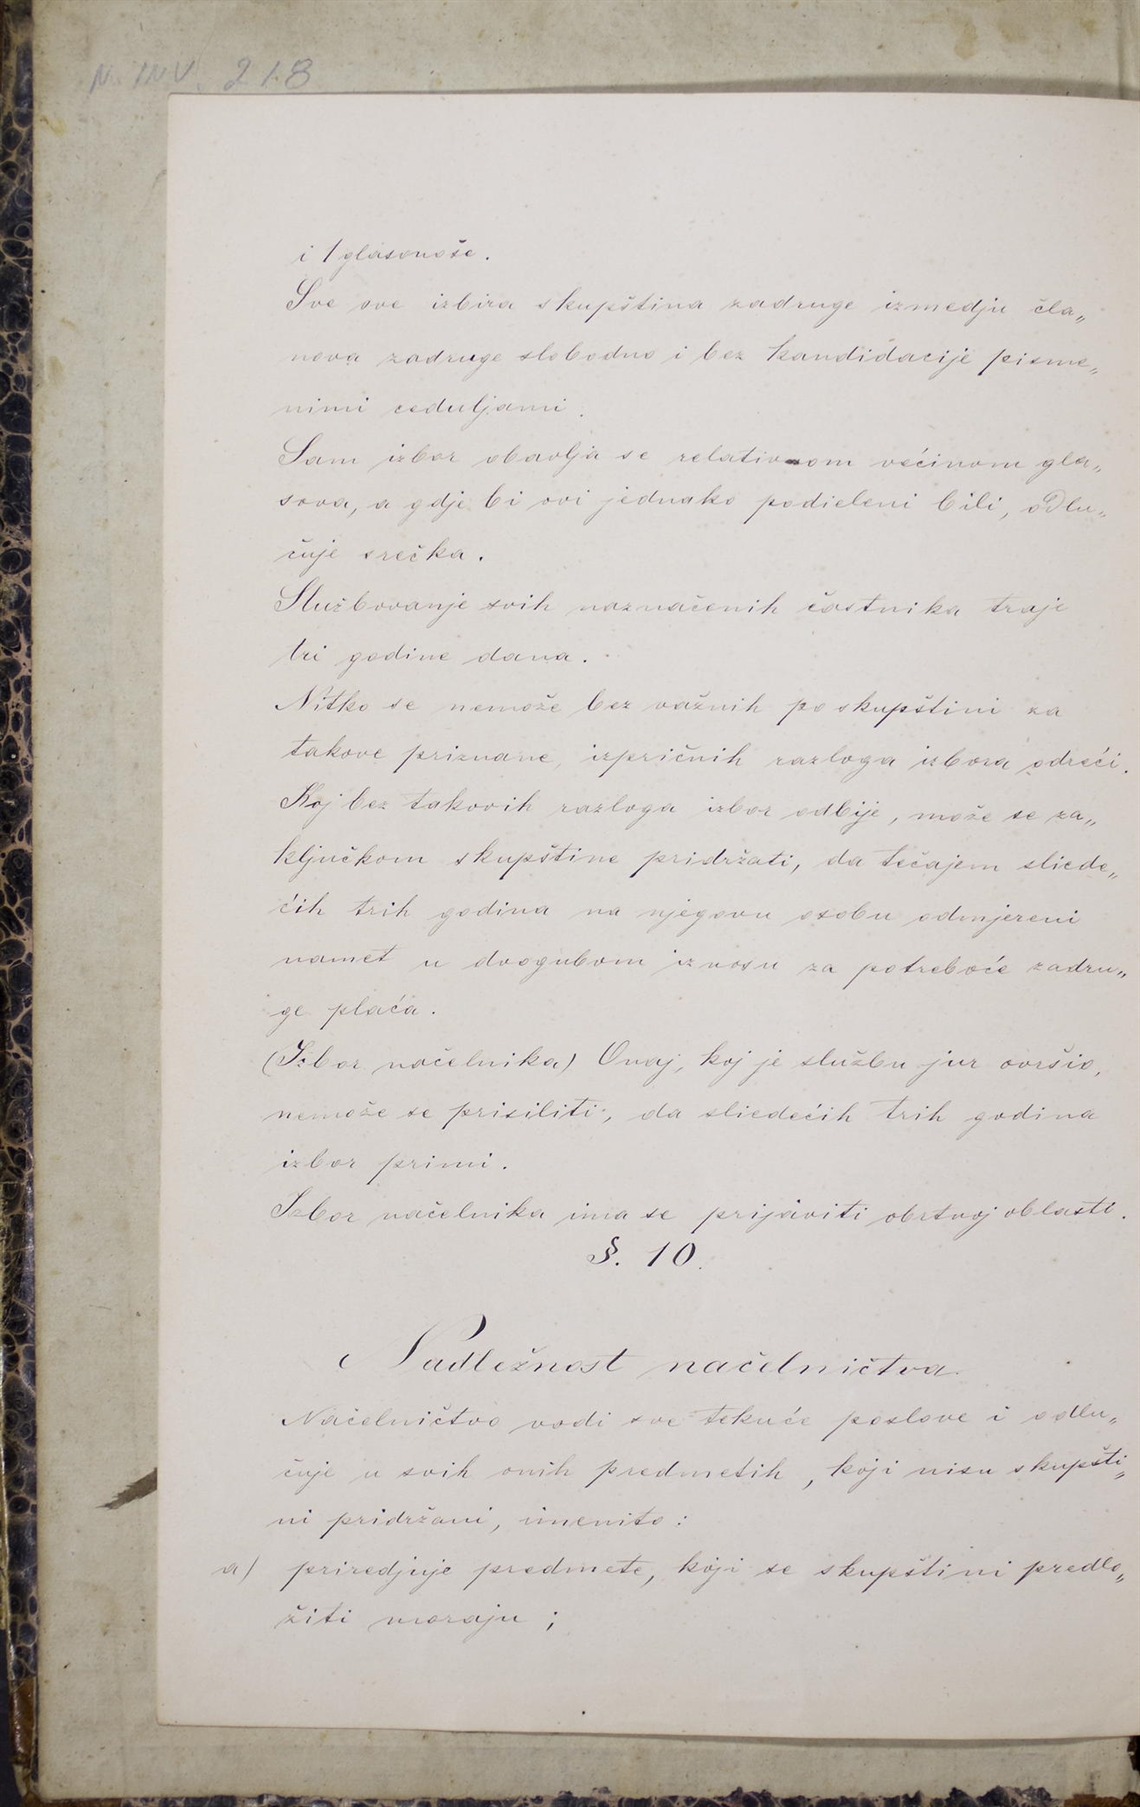 N. INV. 218
i 1 glasonoše.
Sve ove izbira skupština zadruge izmedju čla„
nova zadruge slobodno i bez kandidacije pisme„
nimi ceduljami.
Sam izbor obavlja se relativnom većinom gla„
sova, a gdje bi ovi jednako podieleni bili, odlu„
čuje srečka.
Službovanje svih naznačenih častnika traje
tri godine dana.
Nitko se nemože bez važnih po skupštini za
takove priznane, izpričnih razloga izbora odreći.
Koj bez takovih razloga izbor odbije, može se za„
ključkom skupštine pridržati, da tečajem sliede„
ćih trih godina na njegovu osobu odmjereni
namet u dvogubom iznosu za potreboće zadru„
ge plaća.
(Izbor načelnika) Onaj, koj je službu jur ovršio,
nemože se prisiliti, da sliedećih trih godina
izbor primi.
Izbor načelnika ima se prijaviti obrtnoj oblasti.
§. 10.
Nadležnost načelničtva.
Načelničtvo vodi sve tekuće poslove i odlu„
čuje u svih onih predmetih, koji nisu skupšti„
ni pridržani, imenito:
a) priredjuje predmete, koji se skupštini predlo„
žiti moraju;